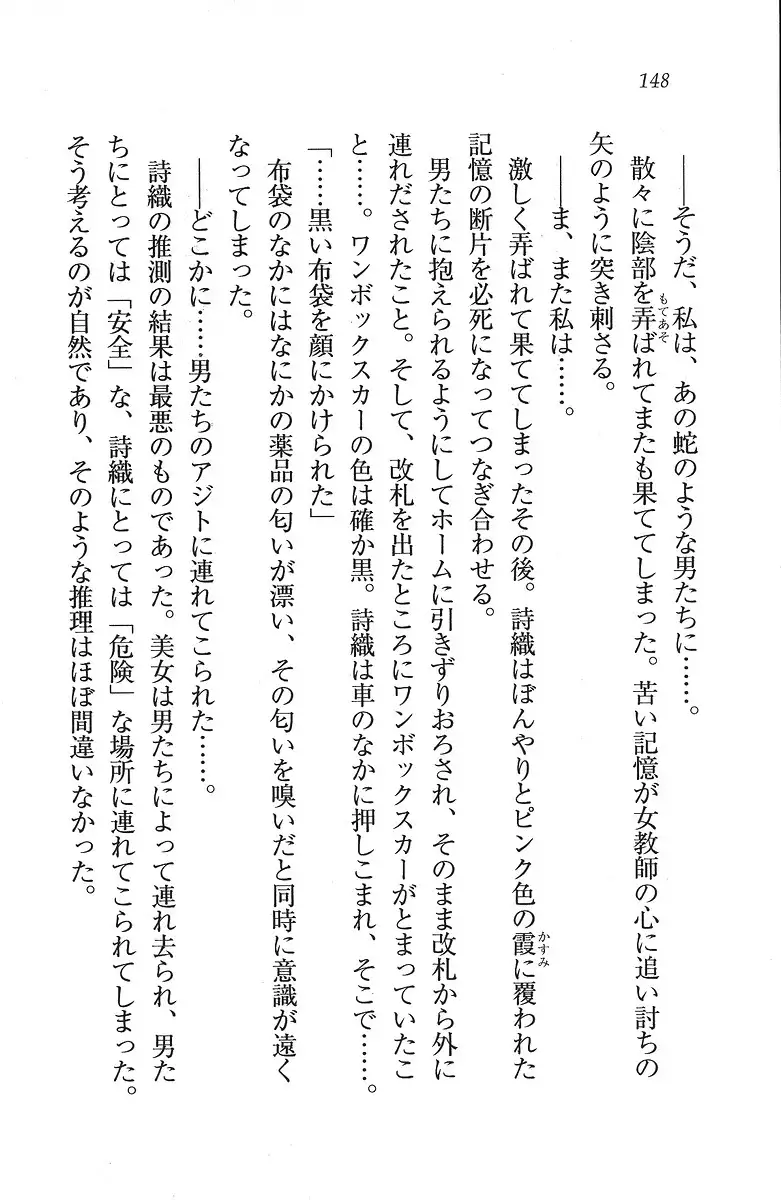 148
――そうだ、私は、あの蛇のような男たちに……。
散々に陰部を弄ばれてまたも果ててしまった。苦い記憶が女教師の心に追い討ちの
もてあそ
矢のように突き刺さる。
――ま、また私は……。
激しく弄ばれて果ててしまったその後。詩織はぼんやりとピンク色の霞に覆われた
かすみ
記憶の断片を必死になってつなぎ合わせる。
男たちに抱えられるようにしてホームに引きずりおろされ、そのまま改札から外に
連れだされたこと。そして、改札を出たところにワンボックスカーがとまっていたこ
と……。ワンボックスカーの色は確か黒。詩織は車のなかに押しこまれ、そこで……。
「……黒い布袋を顔にかけられた」
布袋のなかにはなにかの薬品の匂いが漂い、その匂いを嗅いだと同時に意識が遠く
なってしまった。
――どこかに……男たちのアジトに連れてこられた……。
詩織の推測の結果は最悪のものであった。美女は男たちによって連れ去られ、男た
ちにとっては「安全」な、詩織にとっては「危険」な場所に連れてこられてしまった。
そう考えるのが自然であり、そのような推理はほぼ間違いなかった。